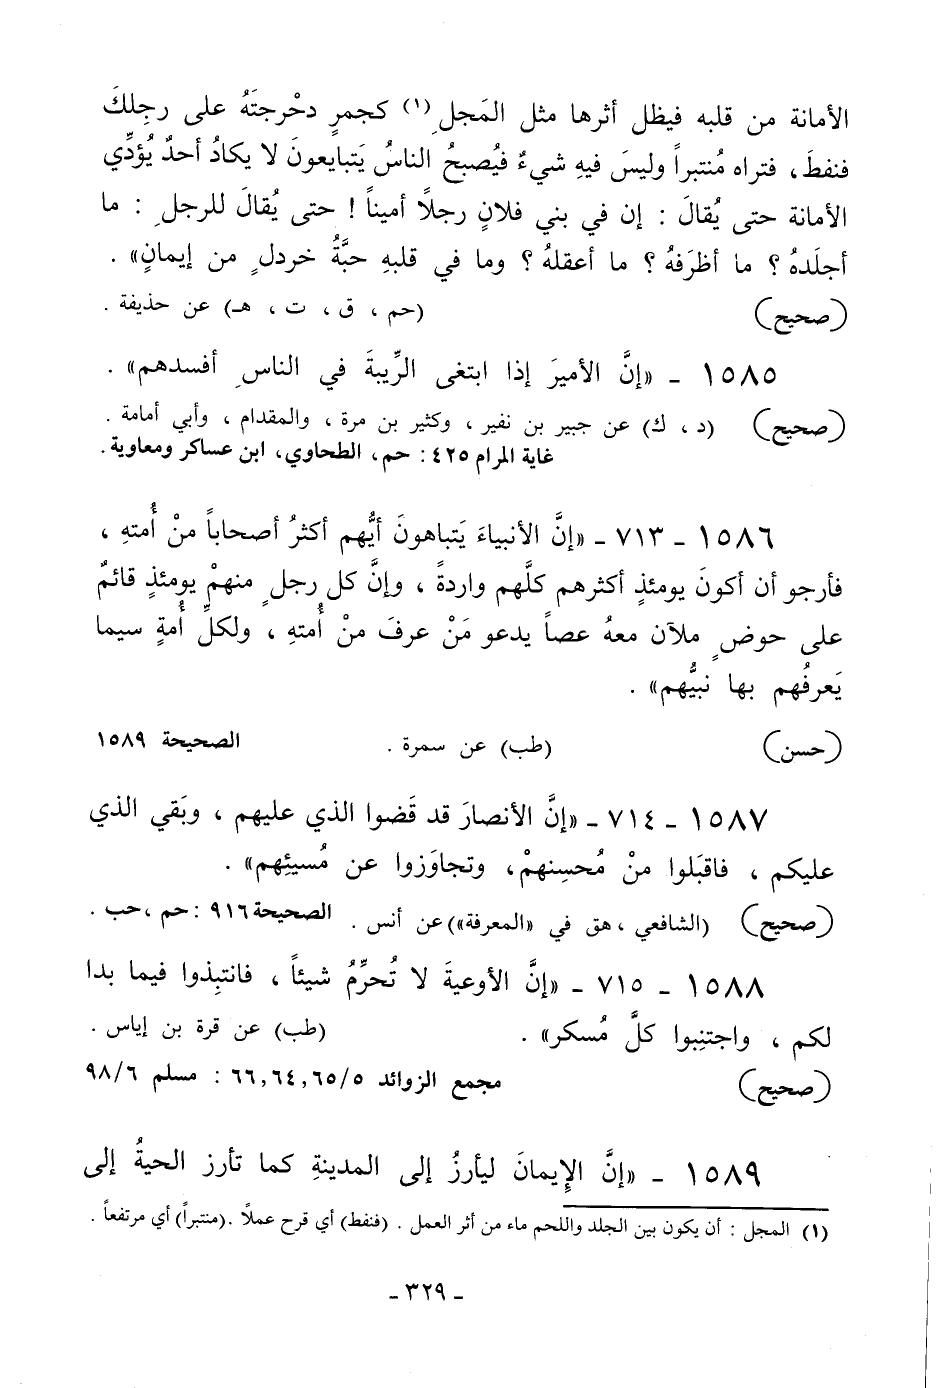 الأمانة من قلبه فيظل أثرها مثل المَجلِ (١) كجمرٍ دحْرجتَهُ على رجِلكَ
فنفطَ ، فتراه مُنتبراً وليسَ فيهِ شيءٌ فيُصبحُ الناسُ يَتبايعونَ لا يكادُ أحدٌ يُؤدِّي
الأمانة حتى يُقالَ : إن في بني فلانٍ رجلًا أميناً ! حتى يُقالَ للرجلِ : ما
أجلَدهُ ؟ ما أظرَفهُ ؟ ما أعقلهُ ؟ وما في قلبهِ حبَّةُ خردلٍ من إيمانٍ» .
(صحيح) (حم ، ق ، ت ، هـ) عن حذيفة .
١٥٨٥ ـ «إنَّ الأميرَ إذا ابتغى الرِّيبةَ في الناسِ أفسدهم» .
(صحيح) (د ، ك) عن جبير بن نفير ، وكثير بن مرة ، والمقدام ، وأبي أمامة .
غاية المرام ٤٢٥ : حم، الطحاوي، ابن عساكر ومعاوية.
١٥٨٦ ـ ٧١٣ ـ «إنَّ الأنبياءَ يَتباهونَ أيُّهم أكثرُ أصحاباً منْ أُمتهِ ،
فأرجو أن أكونَ يومئذٍ أكثرهم كلَّهم واردةً ، وإنَّ كل رجلٍ منهمْ يومئذٍ قائمٌ
على حوضٍ ملآن معهُ عصاً يدعو مَنْ عرفَ منْ أُمتهِ ، ولكلِّ أُمةٍ سيما
يَعرفُهم بها نبيُّهم» .
(حسن) (طب) عن سمرة . الصحيحة ١٥٨٩
١٥٨٧ ـ ٧١٤ ـ «إنَّ الأنصارَ قد قَضوا الذي عليهم ، وبَقي الذي
عليكم ، فاقبَلوا منْ مُحسِنهمْ، وتجاوَزوا عن مُسيئِهم» .
(صحيح) (الشافعي ، هق في «المعرفة») عن أنس . الصحيحة ٩١٦ : حم ، حب .
١٥٨٨ ـ ٧١٥ ـ «إنَّ الأوعيةَ لا تُحرِّمُ شيئاً ، فانتبِذوا فيما بدا
لكم ، واجتنِبوا كلَّ مُسكر» . (طب) عن قرة بن إياس .
(صحيح) مجمع الزوائد ٦٦,٦٤,٦٥/٥ : مسلم ٩٨/٦
١٥٨٩ ـ «إنَّ الإِيمانَ ليأرزُ إلى المدينةِ كما تأرز الحيةُ إلى
(١) المجل : أن يكون بين الجلد واللحم ماء من أثر العمل . (فنفط) أي قرح عملًا .(منتبراً) أي مرتفعاً .
ـ ٣٢٩ ـ